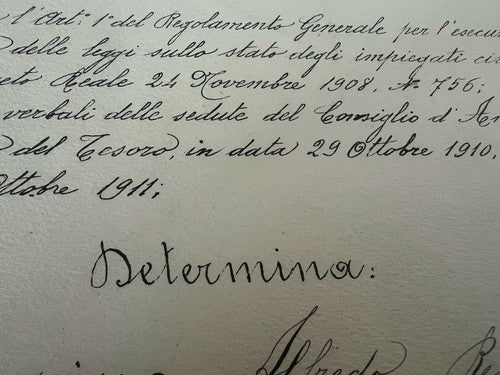 l'Art.° 1° del Regolamento Generale per l'esecu
delle leggi sullo stato degli impiegati ci
eto Reale 24 Novembre 1908, N° 756;
verbali delle sedute del Consiglio d'Am
del Tesoro, in data 29 Ottobre 1910,
ttobre 1911;
Determina:
Alfredo Re